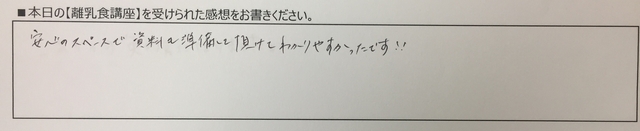 ■本日の【離乳食講座】を受けられた感想をお書きください。
安心のスペースで 資料も準備して頂けてわかりやすかったです!!